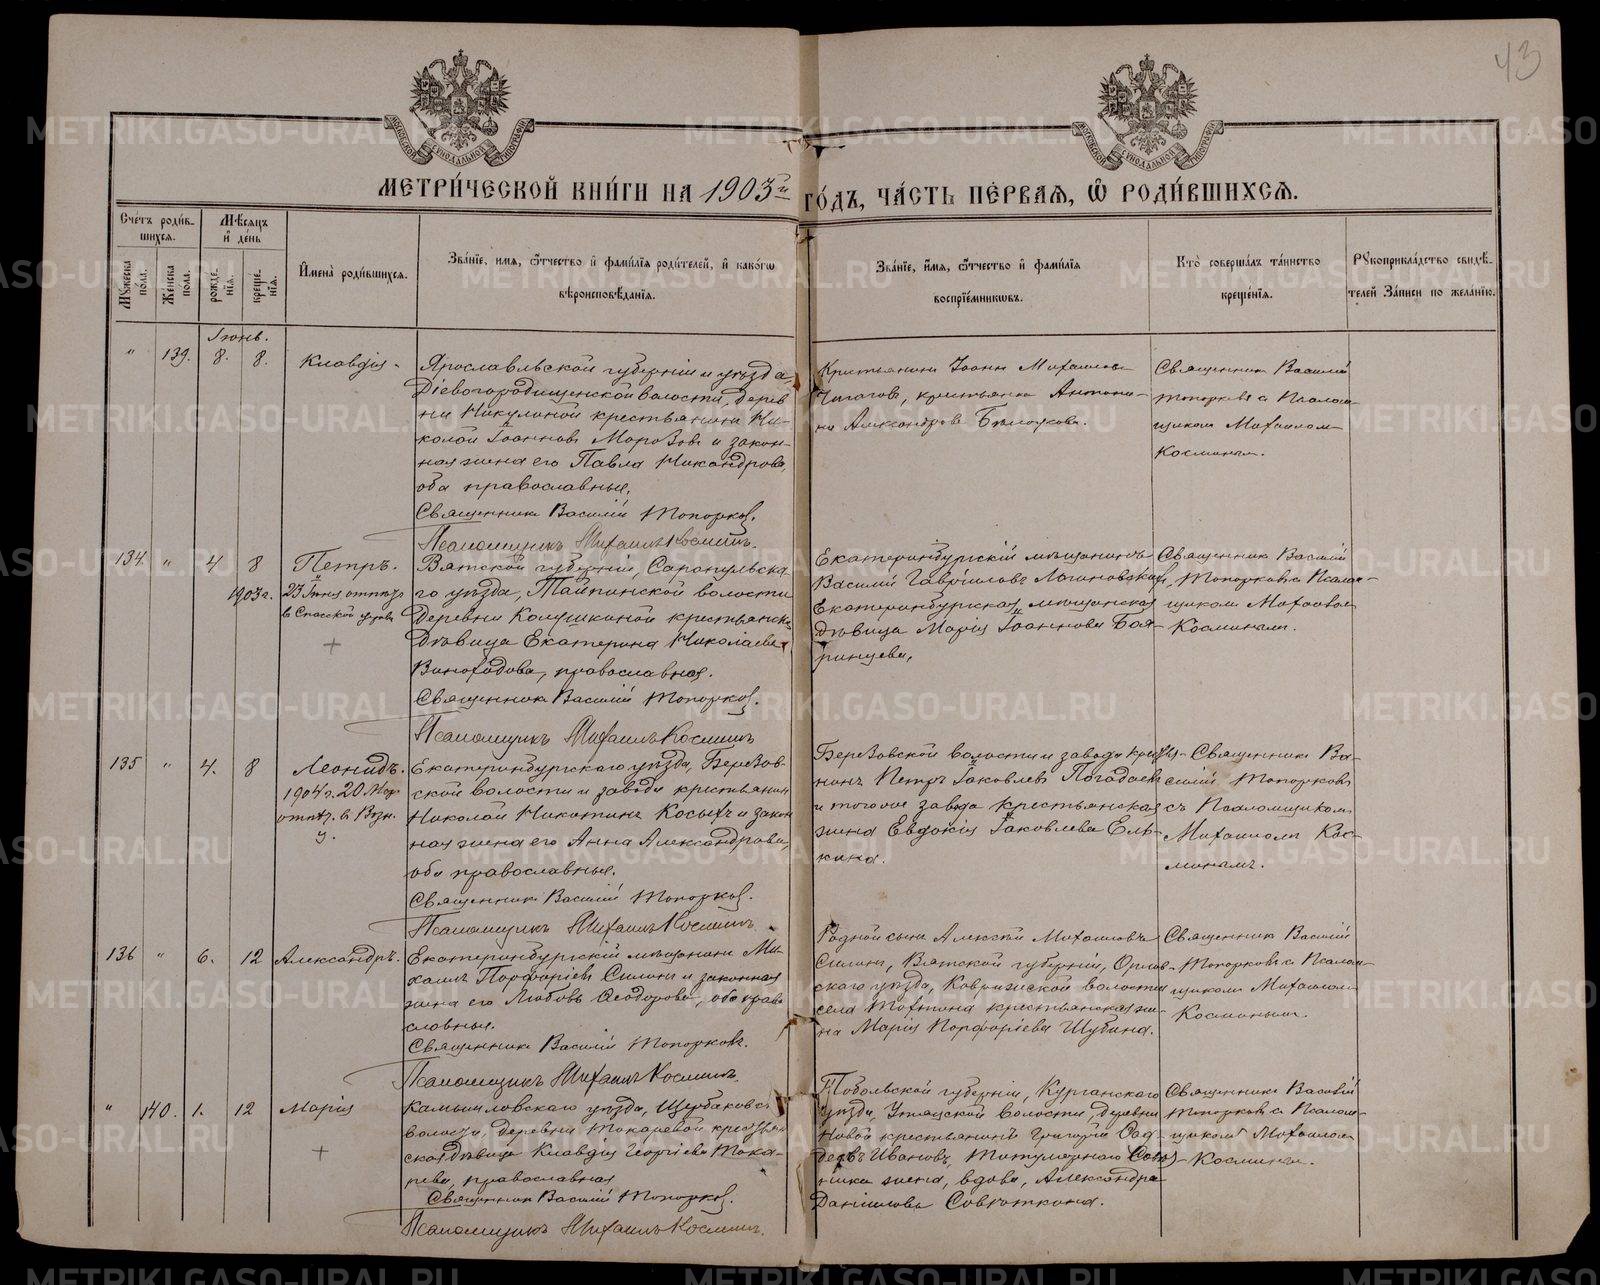 43
МОСКОВСКОЙ СѴНОДАЛЬНОЙ ТИПОГРАФІИ
МОСКОВСКОЙ СѴНОДАЛЬНОЙ ТИПОГРАФІИ
МЕТРИ́ЧЕСКОЙ КНИ́ГИ НА 1903й ГО́ДЪ, ЧА́СТЬ ПЕ́РВАЯ, Ѡ РОДИ́ВШИХСЯ.
Сче́тъ роди́в-
шихся.
Мужеска пола.
Женска пола.
Мѣсяцъ
и де́нь
рожде-
нія.
креще-
нія.
Имена̀ роди́вшихся.
Зва́ніе, имя, ѻтчество и фами́лія роди́телей, и како́гѡ
вѣроисповѣ́данія.
Зва́ніе, и́мя, ѻтчество и фами́лія
воспріе́мниковъ.
Кто̀ соверша́лъ та́инство
креще́нія.
Рукоприкла́дство свидѣ́-
телей За́писи по жела́нію.
Іюнь.
" 139. 8. 8. Клавдія.
Ярославльской губерніи и уѣзда,
Діевогородищенской волости, дерев
ни Никулиной крестьянинъ Ни-
колай Іоанновъ Морозовъ и закон-
ная жена его Павла Никандрова,
оба православные.
Священникъ Василій Топорковъ.
Псаломщикъ Михаилъ Косминъ.
Крестьянинъ Іоаннъ Михаиловъ
Чигаговъ, крестьянка Антони-
на Александрова
Священникъ Василій
Топорковъ съ Псалом-
щикомъ Михаиломъ
Косминымъ.
134. " 4 8 Петръ.
1903 г. 23 Іюня отпѣтъ
въ Спасской церкви
+
Вятской губерніи, Сарапульска-
го уѣзда, волости
деревни крестьянская
дѣвица Екатерина Николаева
Виноградова, православная.
Священникъ Василій Топорковъ.
Псаломщикъ Михаилъ Косминъ
Екатеринбургскій мѣщанинъ
Василій Гавріиловъ Логановскій,
Екатеринбургская мѣщанская
дѣвица Марія Іоаннова Боя-
ринцева.
Священникъ Василій
Топорковъ съ Псалом-
щикомъ Михаиломъ
Косминымъ.
135 " 4. 8 Леонидъ.
1904 г. 20
отпѣт. въ Возн.
ц.
Екатеринбургскаго уѣзда, Березов-
ской волости и завода крестьянинъ
Николай Никитинъ Косыхъ и закон
ная жена его Анна Александрова,
оба православные.
Священникъ Василій Топорковъ.
Псаломщикъ Михаилъ Косминъ.
Березовской волости и завода кресть-
янинъ Петръ Іаковлевъ Погадаевъ
и тогоже завода крестьянская
жена Евдокія Іаковлева Ель-
кина.
Священникъ Ва-
силій Топорковъ
съ Псаломщикомъ
Михаиломъ Кос-
минымъ.
136 " 6. 12 Александръ.
Екатеринбургскій мѣщанинъ Ми-
хаилъ Порфиріевъ Силинъ и законная
жена его Любовь Ѳеодорова, оба право
славные.
Священникъ Василій Топорковъ.
Псаломщикъ Михаилъ Косминъ.
Родной сынъ Алексѣй Михаиловъ
Силинъ, Вятской губерніи, Орлов-
скаго уѣзда, волости
села крестьянская же-
на Марія Порфиріева Шубина.
Священникъ Василій
Топорковъ съ Псалом-
щикомъ Михаиломъ
Косминымъ.
" 140. 1. 12 Марія
+
Камышловскаго уѣзда, Щербаковск.
волости, деревни Токаревой крестьян
ская дѣвица Клавдія Георгіева Тока-
рева, православная
Священникъ Василій Топорковъ.
Псаломщикъ Михаилъ Косминъ.
Тобольской губерніи, Курганскаго
уѣзда, Утяцкой волости, деревни
Новой крестьянинъ Григорій Ѳад-
деевъ Ивановъ, Титулярнаго Совѣт-
ника жена, вдова, Александра
Даніилова Совѣткина.
Священникъ Василій
Топорковъ съ Псалом-
щикомъ Михаиломъ
Косминымъ.
METRIKI.GASO-URAL.RU